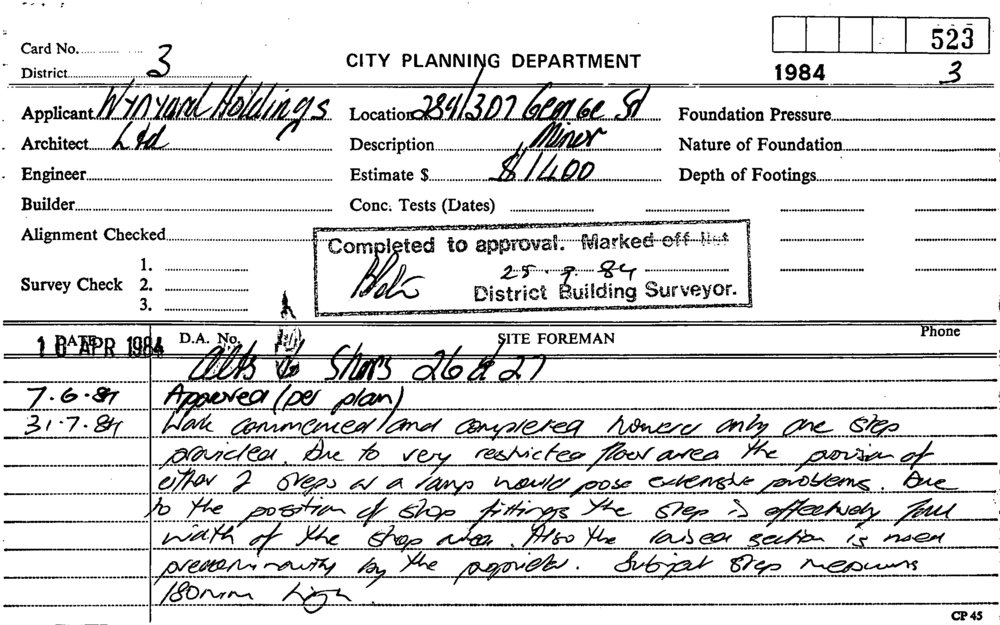 523
Card No. 3
CITY PLANNING DEPARTMENT
1984 3
District
Applicant Wynyard Holdings Location 284/307 George St Foundation Pressure
Architect Ltd Description Minor Nature of Foundation
Engineer Estimate $ $1400 Depth of Footings
Builder Conc. Tests (Dates)
Alignment Checked
Completed to approval. Marked off list
25. 9. 84
District Building Surveyor.
Survey Check 1.
2.
3.
DATE D.A. No. SITE FOREMAN Phone
18 APR 1984
Alts to Shops 26 & 27
7.6.84 Approved (per plan)
31.7.84 Work commenced and completed however only one step
provided. Due to very restricted floor area the provision of
either 2 steps or a ramp would pose extensive problems. Due
to the position of shop fittings the step is effectively full
width of the shop area. Also the raised section is used
predominantly by the proprietor. Subject step measures
180mm high.
CP 45